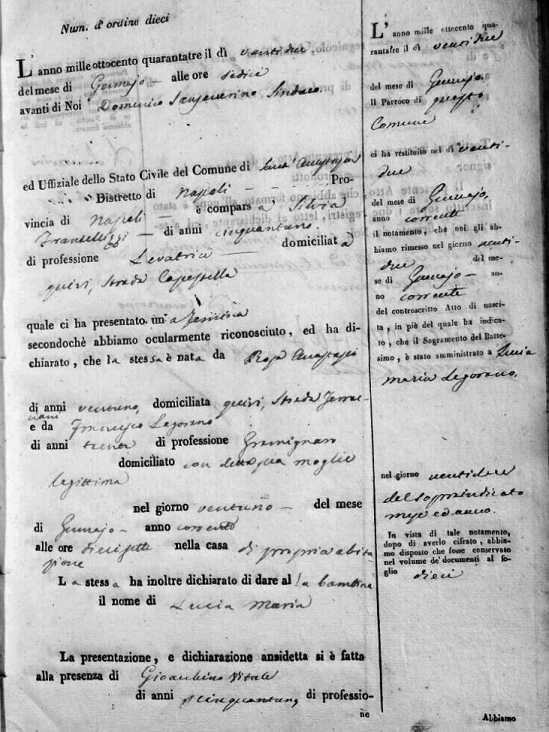 Num. d'ordine dieci
L'anno mille ottocento quarantatre il dì ventidue
del mese di Gennajo — alle ore sedici
avanti di Noi Domenico Sanseverino Sindaco
ed Uffiziale dello Stato Civile del Comune di
Distretto di Napoli — Pro-
vincia di Napoli — è comparsa, Silvia
— di anni cinquantuno
di professione Levatrice — domiciliata
quivi, Strada
quale ci ha presentato una
secondochè abbiamo ocularmente riconosciuto, ed ha di-
chiarato, che la stessa è nata da Rosa
di anni ventuno, domiciliata quivi, Strada
e da Francesco Legorano
di anni trenta di professione Gramignaro
domiciliato con detta sua moglie
legittima
nel giorno ventuno — del mese
di Gennajo — anno corrente
alle ore diecisette nella casa di propria abita
zione
La stessa ha inoltre dichiarato di dare al la bambina
il nome di Lucia Maria
La presentazione, e dichiarazione ansidetta si è fatta
alla presenza di Gioacchino Vitale
di anni cinquantuno di professio-
ne
L'anno mille ottocento qua-
rantatre il dì ventidue
del mese di Gennajo
Il Parroco di
Comune
ci ha restituito nel dì venti-
due
del mese di Gennajo
anno corrente
il notamento, che noi gli ab-
biamo rimesso nel giorno venti-
due del me-
se di Gennajo — an-
no corrente
del controscritto Atto di nasci-
ta, in piè del quale ha indica-
to, che il Sagramento del Battesi-
mo, è stato amministrato a Lucia
Maria Legorano,
nel giorno ventidue
del sopraindicato
mese ed anno.
In vista di tale notamento,
dopo di averlo cifrato, abbia-
mo disposto che fosse conservato
nel volume de' documenti al fo-
glio dieci
Abbiamo